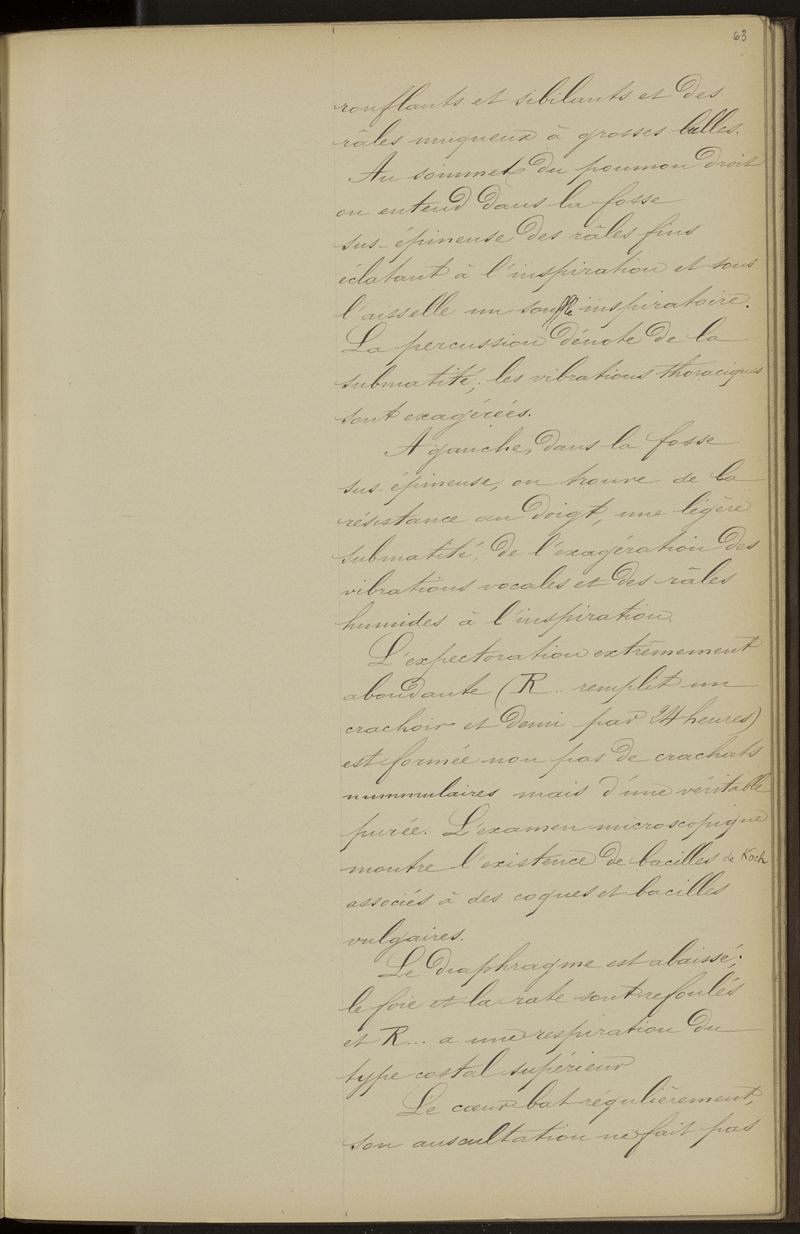 63
ronflants et sibilants et des
râles muqueux à grosses bulles.
Au sommet du poumon droit
on entend dans la fosse
sus-épineuse des râles fins
éclatant à l'inspiration et sous
l'aisselle un souffle inspiratoire.
La percussion dénote de la
submatité; les vibrations thoraciques
sont exagérées.
A gauche, dans la fosse
sus-épineuse, on trouve de la
résistance au doigt, une légère
submatité, de l'exagération des
vibrations vocales et des râles
humides à l'inspiration.
L'expectoration extrêmement
abondante (R... remplit un
crachoir et demi par 24 heures)
est formée non pas de crachats
nummulaires mais d'une véritable
purée. L'examen microscopique
montre l'existence de bacilles de Koch
associés à des coques et bacilles
vulgaires.
Le diaphragme est abaissé;
le foie et la rate sont refoulés
et R... a une respiration du
type costal supérieur
Le cœur bat régulièrement,
son auscultation ne fait pas